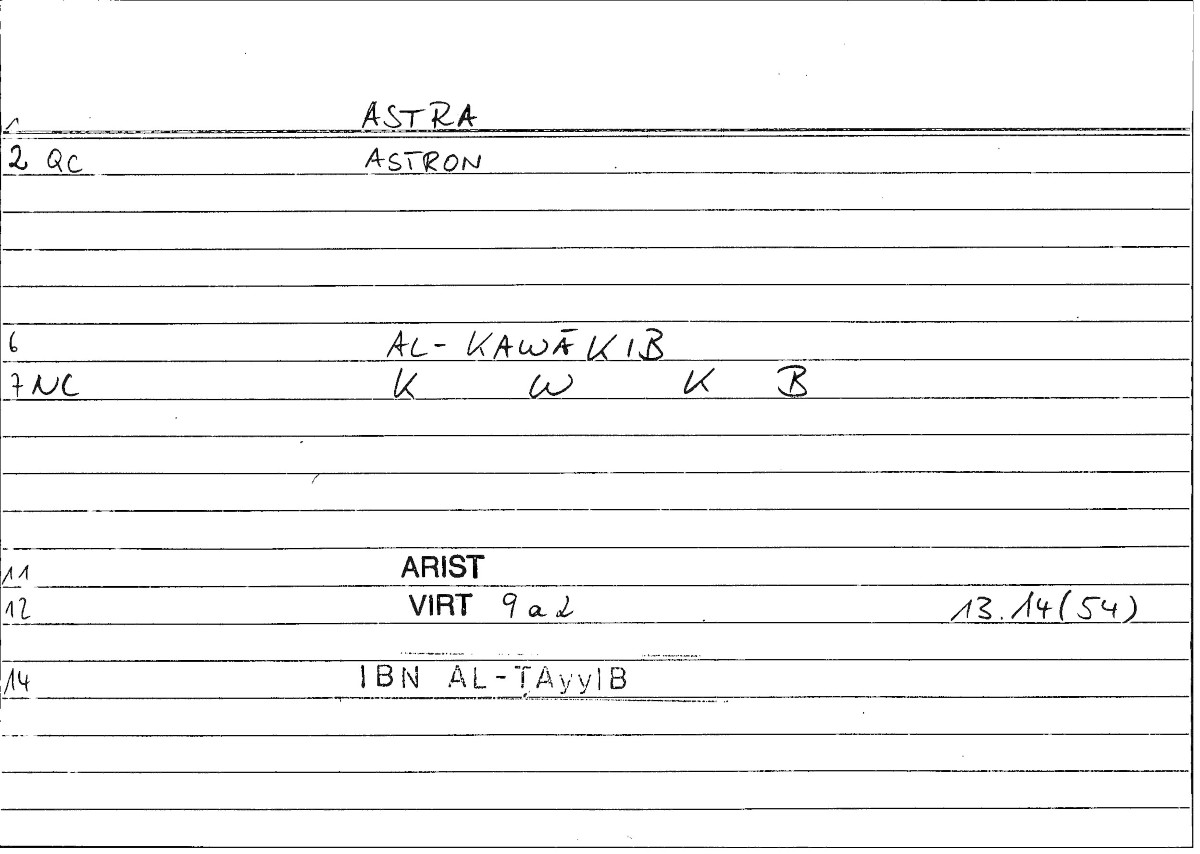 1 ASTRA
2 QC ASTRON
6 AL-KAWĀKIB
7 NC K W K B
11 ARIST
12 VIRT 9a2 13.14(54)
14 IBN AL-ṬAyyIB